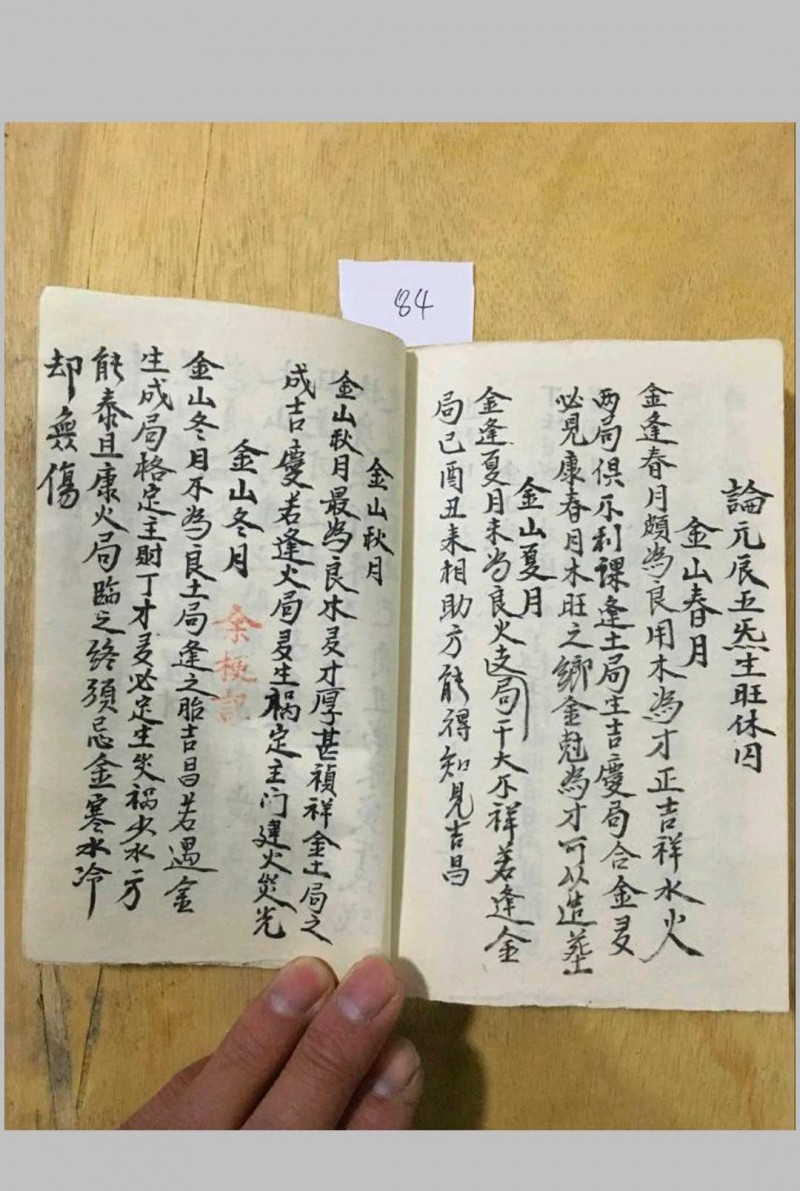 84
論元辰五炁生旺休囚
金山春月
金逢春月頗為良用木為才正吉祥水火
两局俱不利課逢土局生吉慶局合金旻
必見康春月木旺之鄉金尅為才可以造葬
金山夏月
金逢夏月未為良火支局干大不祥若逢金
局已酉丑来相助方能得知見吉昌
金山秋月
金山秋月最為良木旻才厚甚禎祥金土局之
成吉慶若逢火局旻生禍定主门建火災光
金山冬月
余梗記
金山冬月不為良土局逢之胎吉昌若遇金
生成局格定主財丁才旻必定生災禍少水方
能泰且康火局臨之終須忌金寒水冷
却無傷